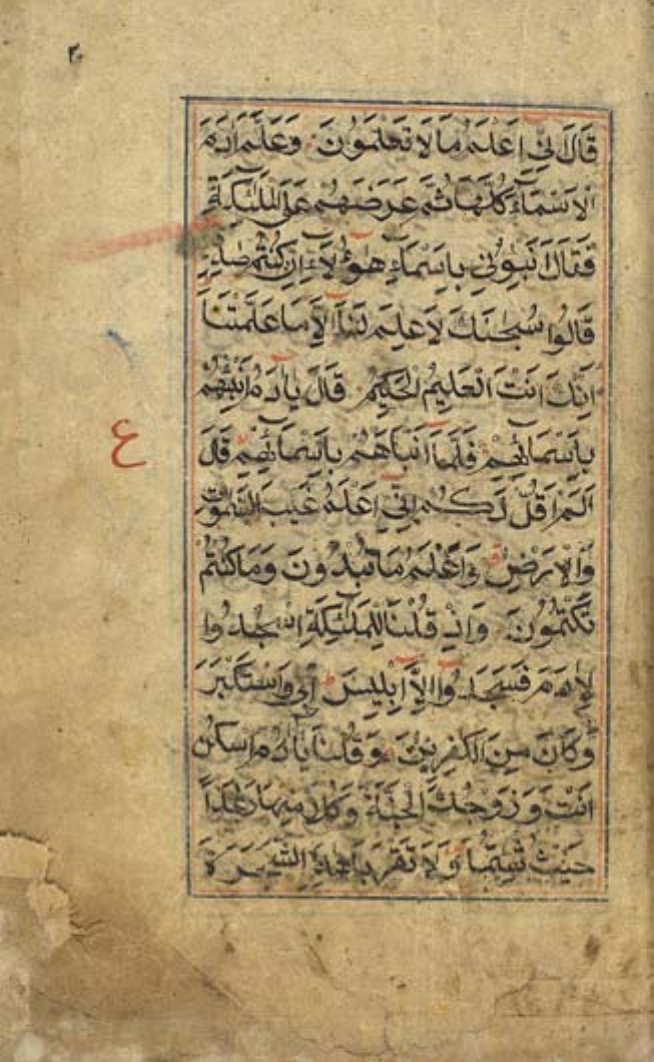 ٢٠
قَالَ اِنِّیْ اَعْلَمُ مَا لَا تَعْلَمُوْنَ وَعَلَّمَ اٰدَمَ
الْاَسْمَآءَ كُلَّهَا ثُمَّ عَرَضَهُمْ عَلَی الْمَلٰٓئِكَةِ
فَقَالَ اَنْۢبِـُٔوْنِیْ بِاَسْمَآءِ هٰٓؤُلَآءِ اِنْ كُنْتُمْ صٰدِقِیْنَ
قَالُوْا سُبْحٰنَكَ لَا عِلْمَ لَنَآ اِلَّا مَا عَلَّمْتَنَا
اِنَّكَ اَنْتَ الْعَلِیْمُ الْحَكِیْمُ قَالَ یٰٓاٰدَمُ اَنْۢبِئْهُمْ
بِاَسْمَآئِهِمْ فَلَمَّآ اَنْۢبَاَهُمْ بِاَسْمَآئِهِمْ قَالَ
ع
اَلَمْ اَقُلْ لَّكُمْ اِنِّیْ اَعْلَمُ غَیْبَ السَّمٰوٰتِ
وَالْاَرْضِ وَاَعْلَمُ مَا تُبْدُوْنَ وَمَا كُنْتُمْ
تَكْتُمُوْنَ وَاِذْ قُلْنَا لِلْمَلٰٓئِكَةِ اسْجُدُوْا
لِاٰدَمَ فَسَجَدُوْٓا اِلَّآ اِبْلِیْسَ اَبٰی وَاسْتَكْبَرَ
وَكَانَ مِنَ الْكٰفِرِیْنَ وَقُلْنَا یٰٓاٰدَمُ اسْكُنْ
اَنْتَ وَزَوْجُكَ الْجَنَّةَ وَكُلَا مِنْهَا رَغَدًا
حَیْثُ شِئْتُمَا وَلَا تَقْرَبَا هٰذِهِ الشَّجَرَةَ